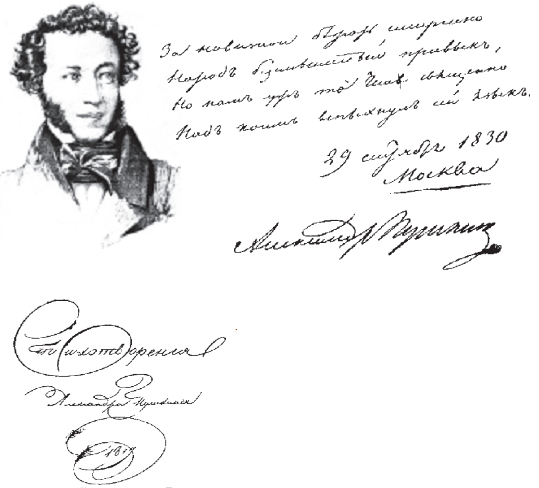 За новизной бѣгать смиренно
Народъ безсмысленный привыкъ,
Но намъ ужъ то
Надъ коимъ
29 сентября 1830
Москва
Александръ Пушкинъ
Стихотворенія
Александра Пушкина
1817